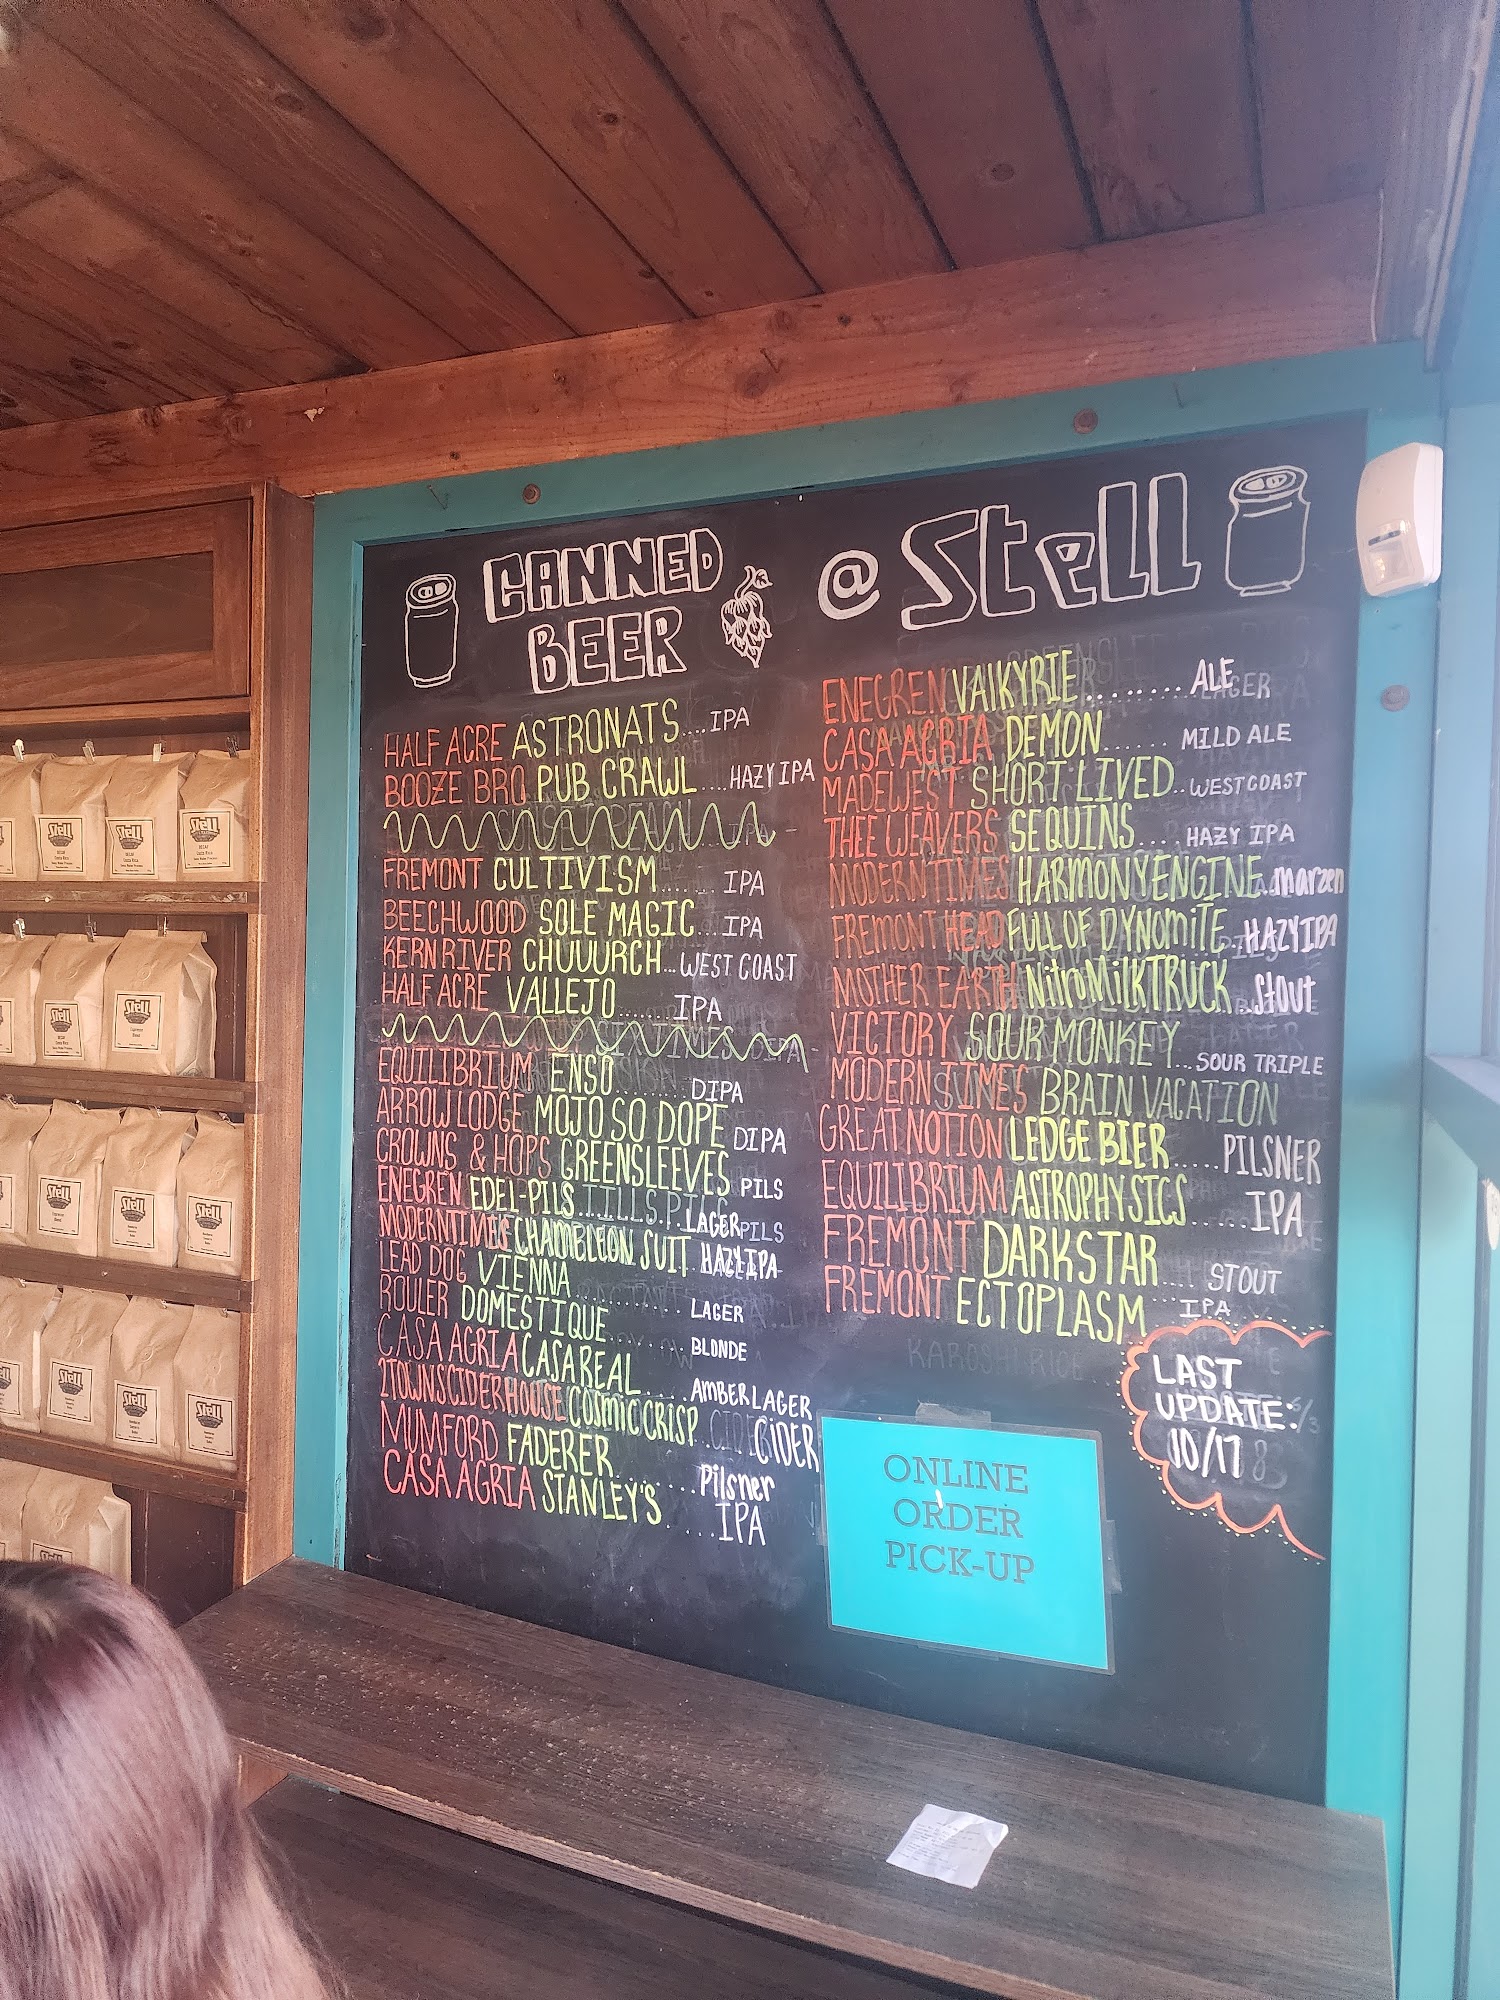 CANNED
BEER
@ Stell
HALF ACRE ASTRONATS....IPA
BOOZE BRO PUB CRAWL....HAZY IPA
FREMONT CULTIVISM...... IPA
BEECHWOOD SOLE MAGIC...IPA
KERN RIVER CHUUURCH...WEST COAST
HALF ACRE VALLEJO....... IPA
EQUILIBRIUM ENSO........DIPA
ARROW LODGE MOJO SO DOPE DIPA
CROWNS & HOPS GREENSLEEVES PILS
ENEGREN EDEL-PILS...LAGER
MODERN TIMES CHAMELEON SUIT HAZY IPA
LEAD DOG VIENNA............LAGER
ROULER DOMESTIQUE........BLONDE
CASA AGRIA CASA REAL.....AMBER LAGER
2 TOWNS CIDERHOUSE COSMIC CRISP CIDER
MUMFORD FADERER.......Pilsner
CASA AGRIA STANLEY'S.....IPA
ENEGREN VALKYRIE.........ALE
CASA AGRIA DEMON...... MILD ALE
MADEWEST SHORT LIVED..WEST COAST
THEE WEAVERS SEQUINS....HAZY IPA
MODERN TIMES HARMONY ENGINE marzen
FREMONT HEAD FULL OF DYNOMITE...HAZY IPA
MOTHER EARTH Nitro MilK TRUCK...Stout
VICTORY SOUR MONKEY...SOUR TRIPLE
MODERN TIMES BRAIN VACATION
GREAT NOTION LEDGE BIER.....PILSNER
EQUILIBRIUM ASTROPHYSICS......IPA
FREMONT DARKSTAR.... STOUT
FREMONT ECTOPLASM...IPA
LAST
UPDATE:
10/17
ONLINE
ORDER
PICK-UP
Stell
Stell
Stell
Stell
Stell
Stell
Stell
Stell
Stell
Stell
Stell